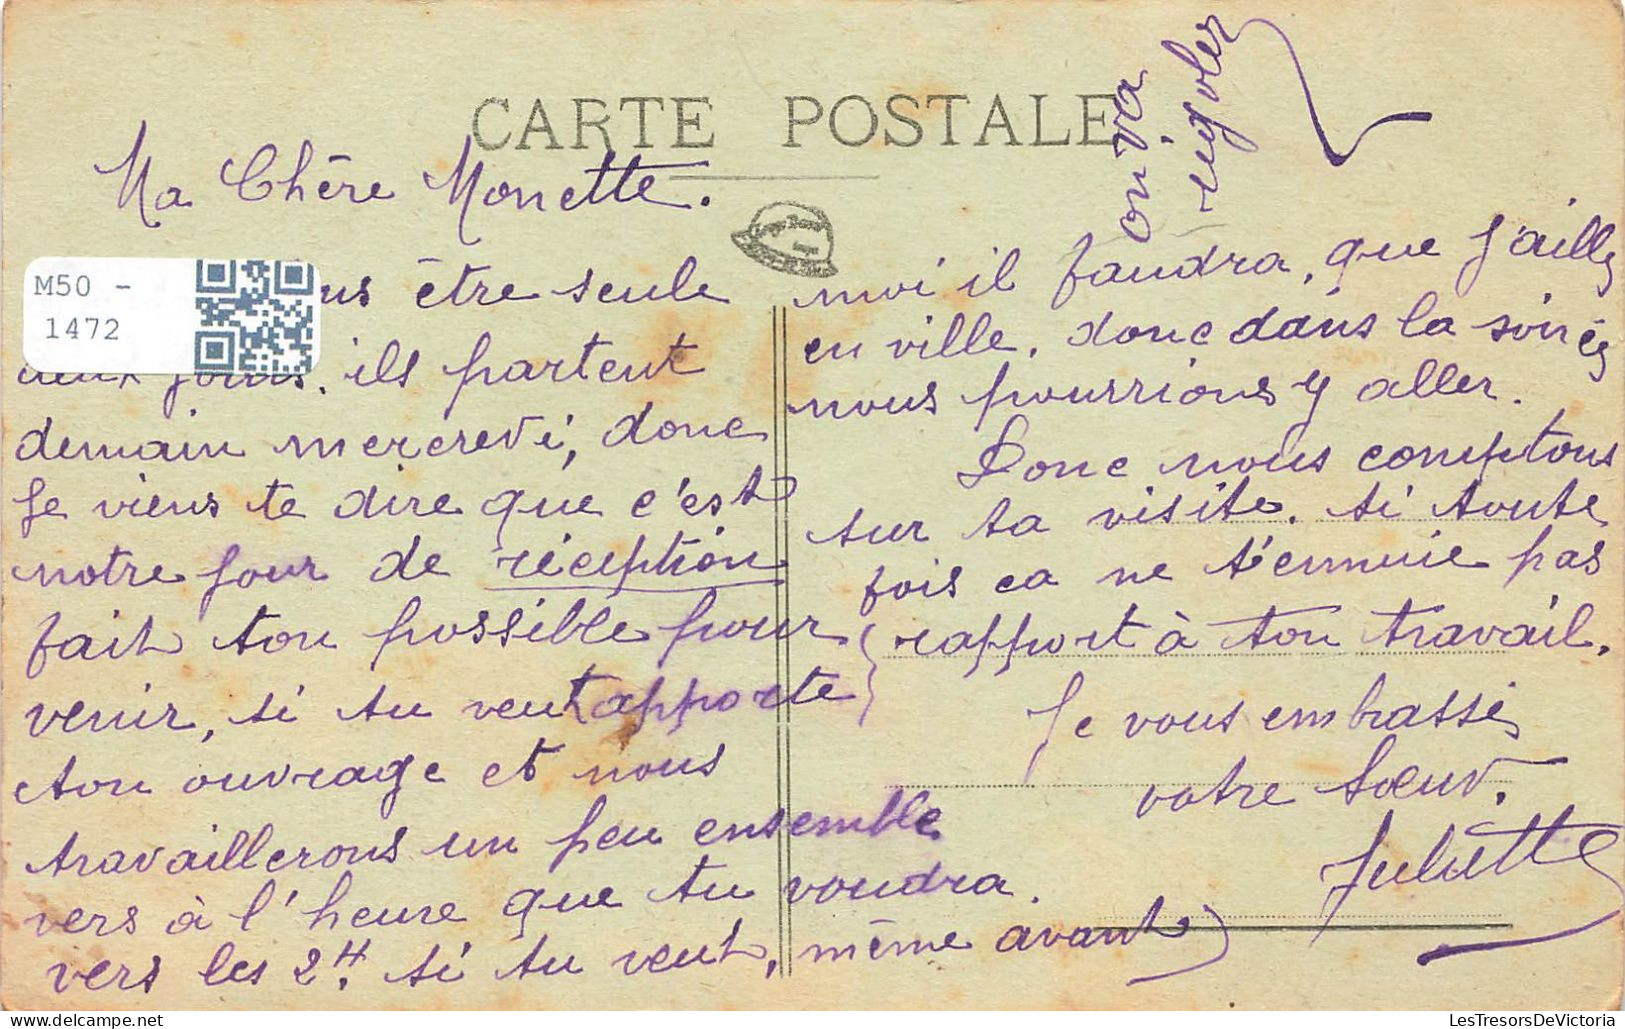 CARTE POSTALE
on va
rigoler
Ma Chère Monette.
M50 -
1472
us être seule
deux jours. ils partent
demain mercredi, donc
Je viens te dire que c'est
notre jour de réception
fait ton possible pour
venir, si tu veut apporte
ton ouvrage et nous
travaillerons un peu ensemble
vers à l'heure que tu voudra.
vers les 2H. si tu veut, même avant
moi il faudra, que J'aille
en ville, donc dans la soirée
nous pourrions y aller.
Donc nous comptons
sur ta visite. si toute
fois ca ne t'ennuie pas
rapport à ton travail.
Je vous embrasse
votre Sœur.
Juliette
LesTresorsDeVictoria